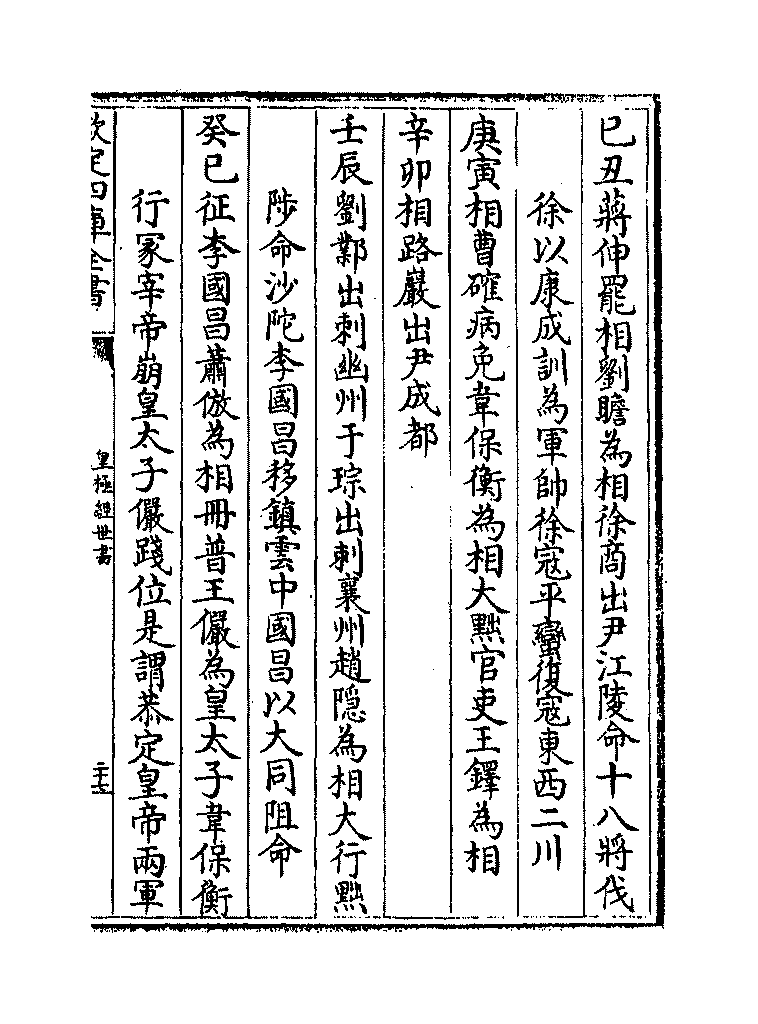 已丑蔣伸罷相劉瞻為相徐商出尹江陵命十八將伐
徐以康成訓為軍帥徐寇平蠻復寇東西二川
庚寅相曹確病免韋保衡為相大黜官吏王鐸為相
辛卯相路巖出尹成都
壬辰劉鄴出刺幽州于琮出刺襄州趙隱為相大行黜
陟命沙陀李國昌移鎮雲中國昌以大同阻命
癸已征李國昌蕭倣為相冊普王儼為皇太子韋保衡
行冢宰帝崩皇太子儼踐位是謂恭定皇帝兩軍
欽定四庫全書
皇極經世書
二十七